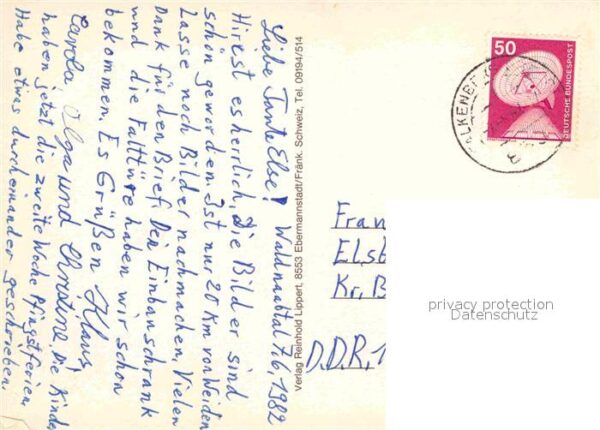 Waldnaabtal 7.6.1982
Liebe Tante Else!
Hir est es herrlich, die Bilder sind
schön geworden. Ist nur 20 Km von Weiden
Lasse noch Bilder nachmachen. Vielen
Dank für den Brief. Den Einbauschrank
und die Falttüre haben wir schon
bekommen. Es Grüßen Klaus,
Carola Olga und Christine, die Kinder
haben jetzt die zweite Woche Pfingstferien.
Habe etwas durcheinander geschrieben.
Verlag Reinhold Lippert, 8553 Ebermannstadt/Fränk. Schweiz, Tel. 09194/514
50
DEUTSCHE BUNDESPOST
Fran
Elsb
Kr. B
D.D.R. 1
privacy protection
Datenschutz